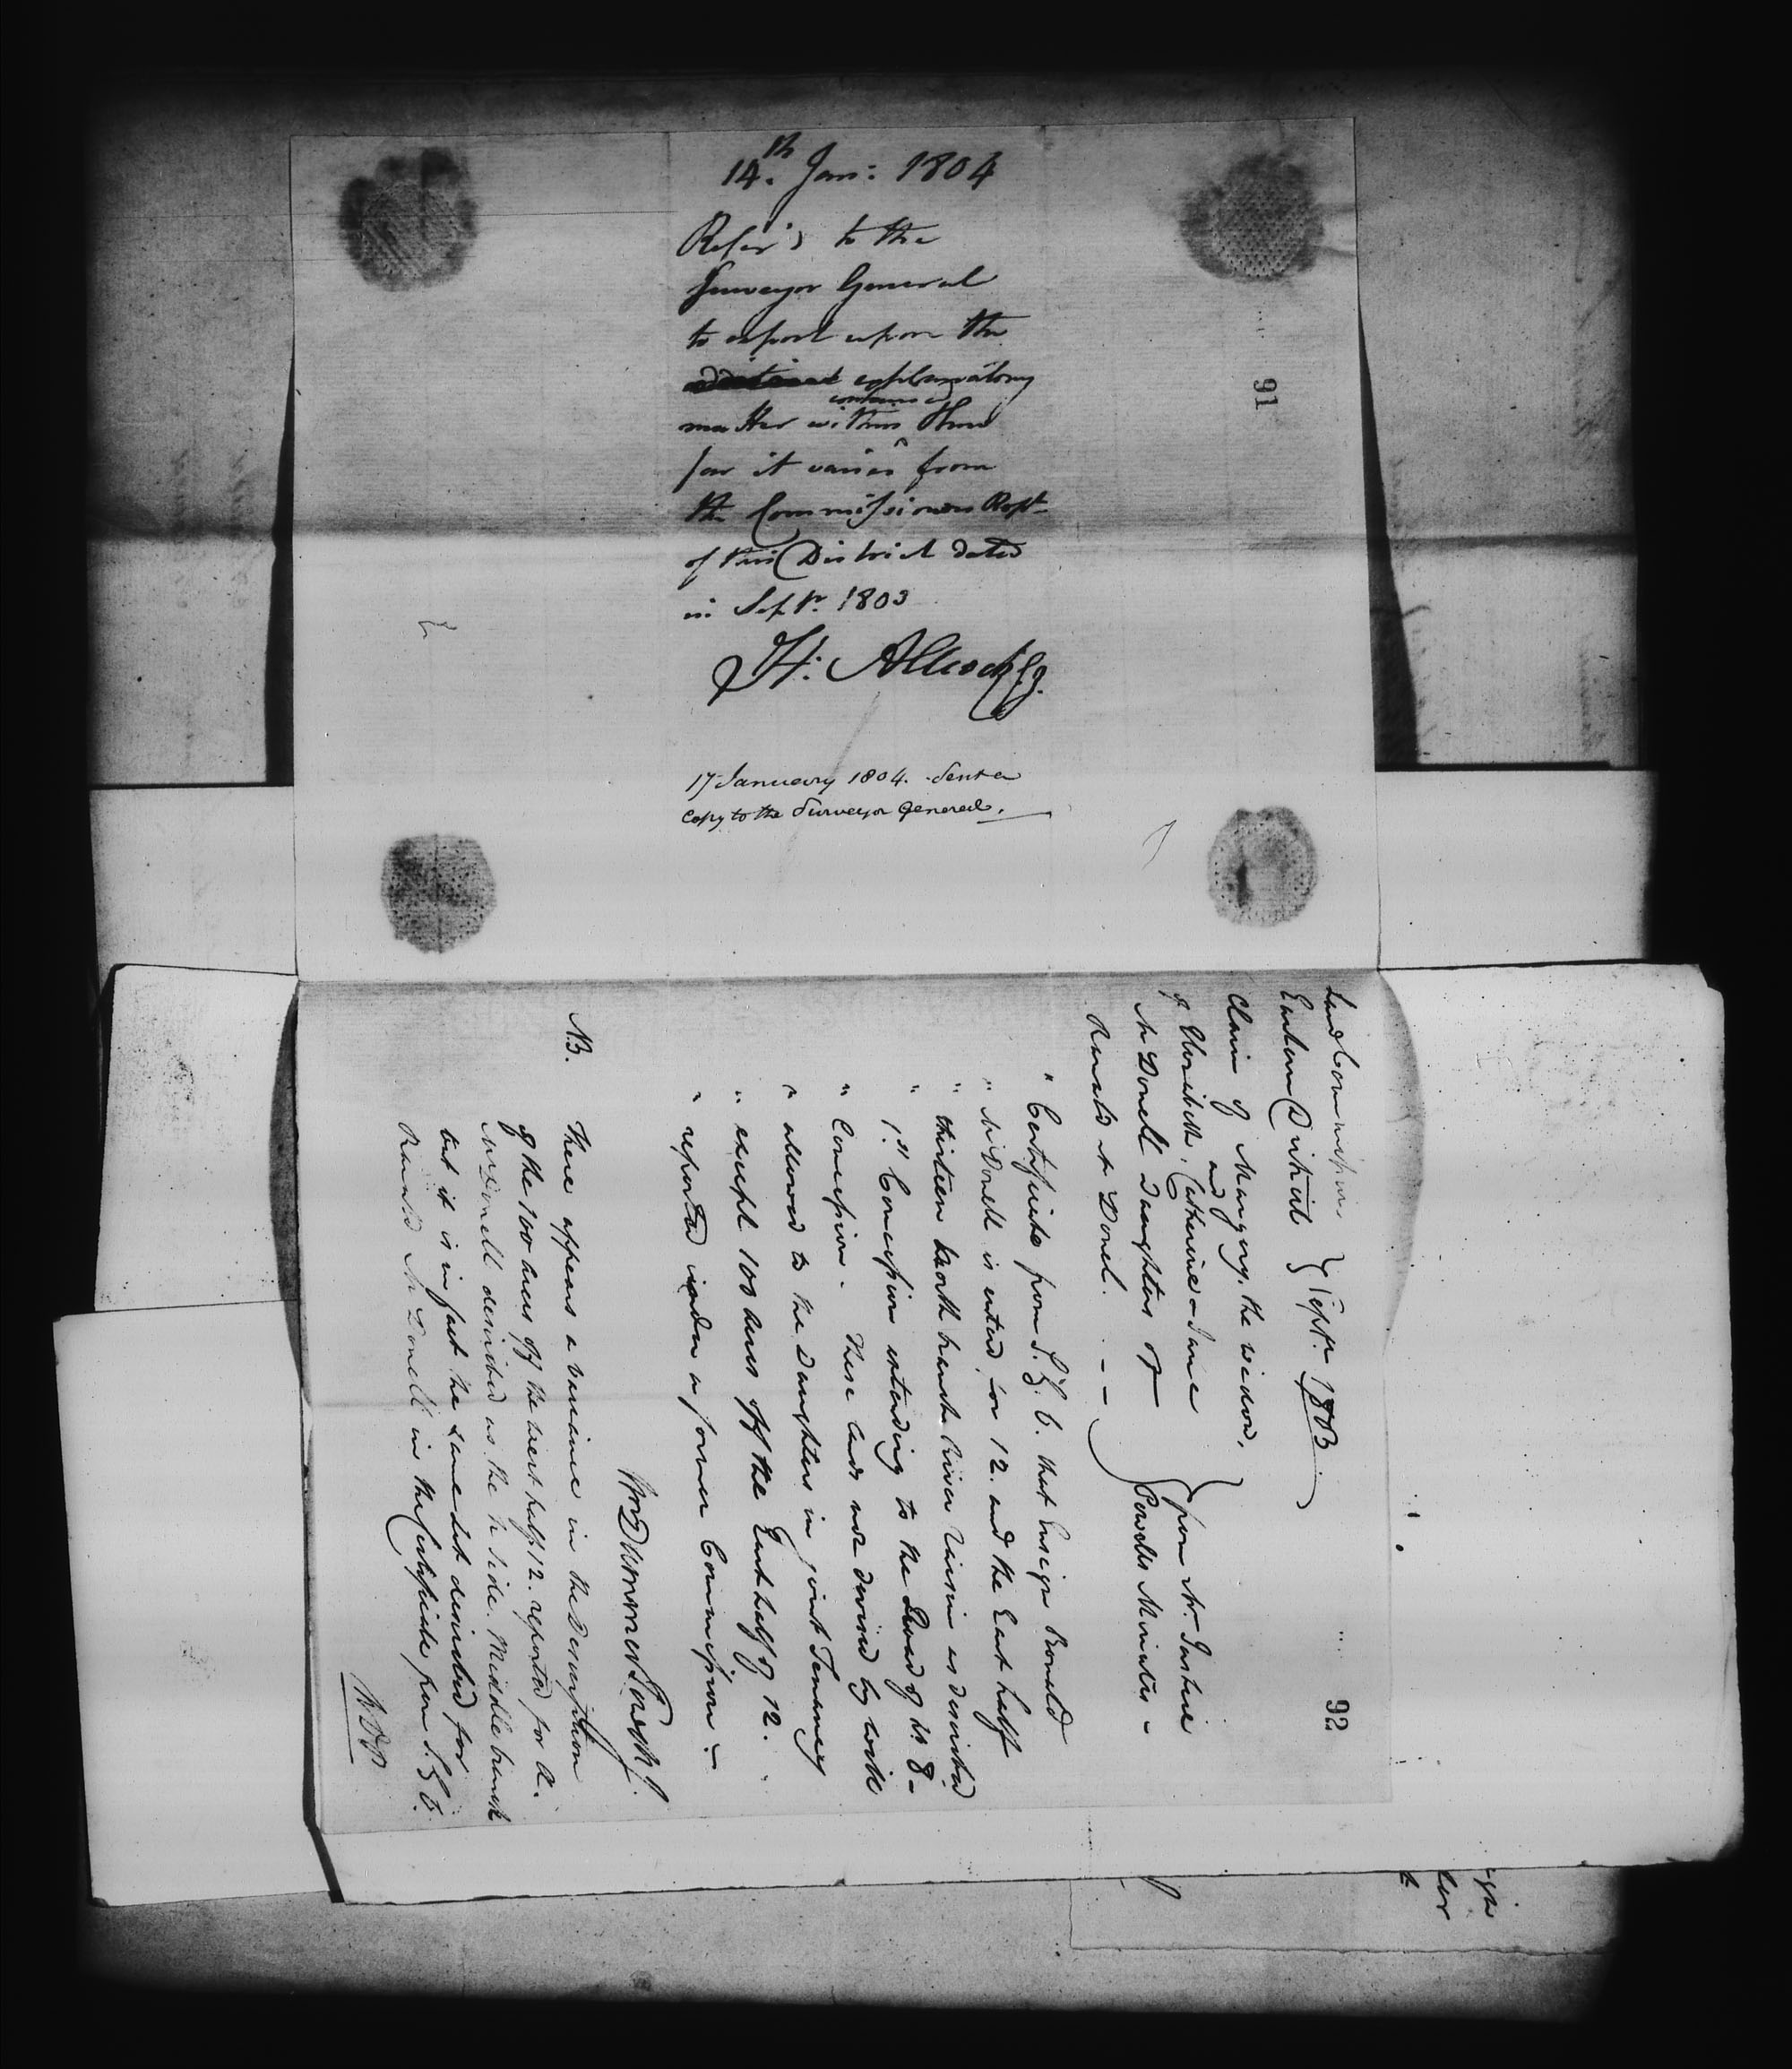 14.th Jan: 1804
Refer'd to the
Surveyor General
to report upon the
explanatory
contained
matter within
far it varies from
the Commissioners Rept
of this District dated
in Septr. 1803
H: Allcock
17 January 1804. Sent a
Copy to the Surveyor General.
91
92
Land Commission
Eastern District } Septr 1803
Claim of Margery, the widow,
and
Catherine & Jane
McDonell Daughters of
Ronald McDonell. - -
from Mr. Justice
Powells Minutes -
" Certificate from S. G. O. that Ensign Ronald
" McDonell is entered for 12. and the East half
" thirteen North branch River Raisin as described
" 1st Concession extending to the Lead of Lt 8 -
" Concession. These Lands not devised by will
" allowed to the Daughters in joint Tenancy
" except 100 acres off the East half of 12.
" reported under a former Commission -
Wm Dummer Powell J.
N.B. There appears a variance in the Description
of the 100 acres off the West half 12. reported for A.
McDonell described as the N. side Middle branch
but it is in fact the same Lot described for
Ronald McDonell in the Certificate from S. G. O.
WDP